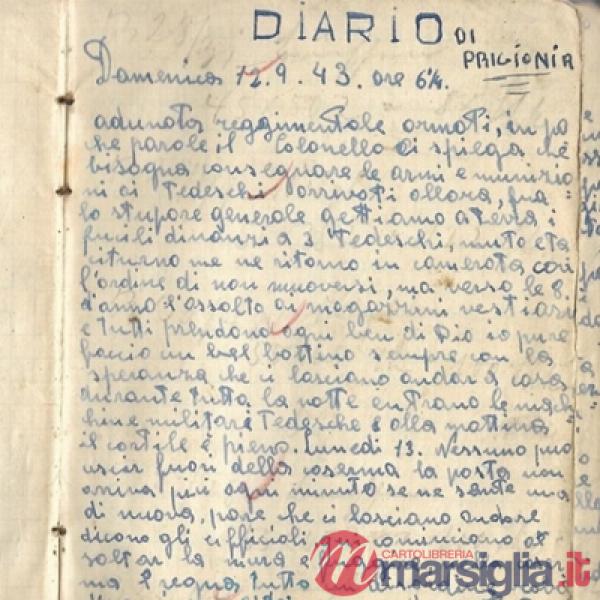 DIARIO DI
PRIGIONIA
Domenica 12.9.43. ore 6¼.
adunata reggimentale armati, in po
che parole il Colonello ci spiega che
bisogna consegnare le armi e munizio
ni ai Tedeschi arrivati allora, fra
lo stupore generale gettiamo a terra i
fucili dinanzi a 3 Tedeschi, muto e ta
citurno me ne ritorno in camerata con
l'ordine di non muoversi, ma verso le 8.
danno l'assalto ai magazzini vestiari
e tutti prendono ogni ben di Dio io pure
faccio un bel bottino sempre con la
speranza che ci lasciano andar a casa
durante tutta la notte entrano le mac
chine militari Tedesche e alla mattina
il cortile è pieno. Lunedì 13. Nessuno può
uscir fuori della caserma la posta non
arriva più ogni minuto se ne sente una
di nuova, pare che ci lasciano andare
dicono gli ufficiali, cominciano a
saltar la mura e
ma
CARTOLIBRERIA
marsiglia.it